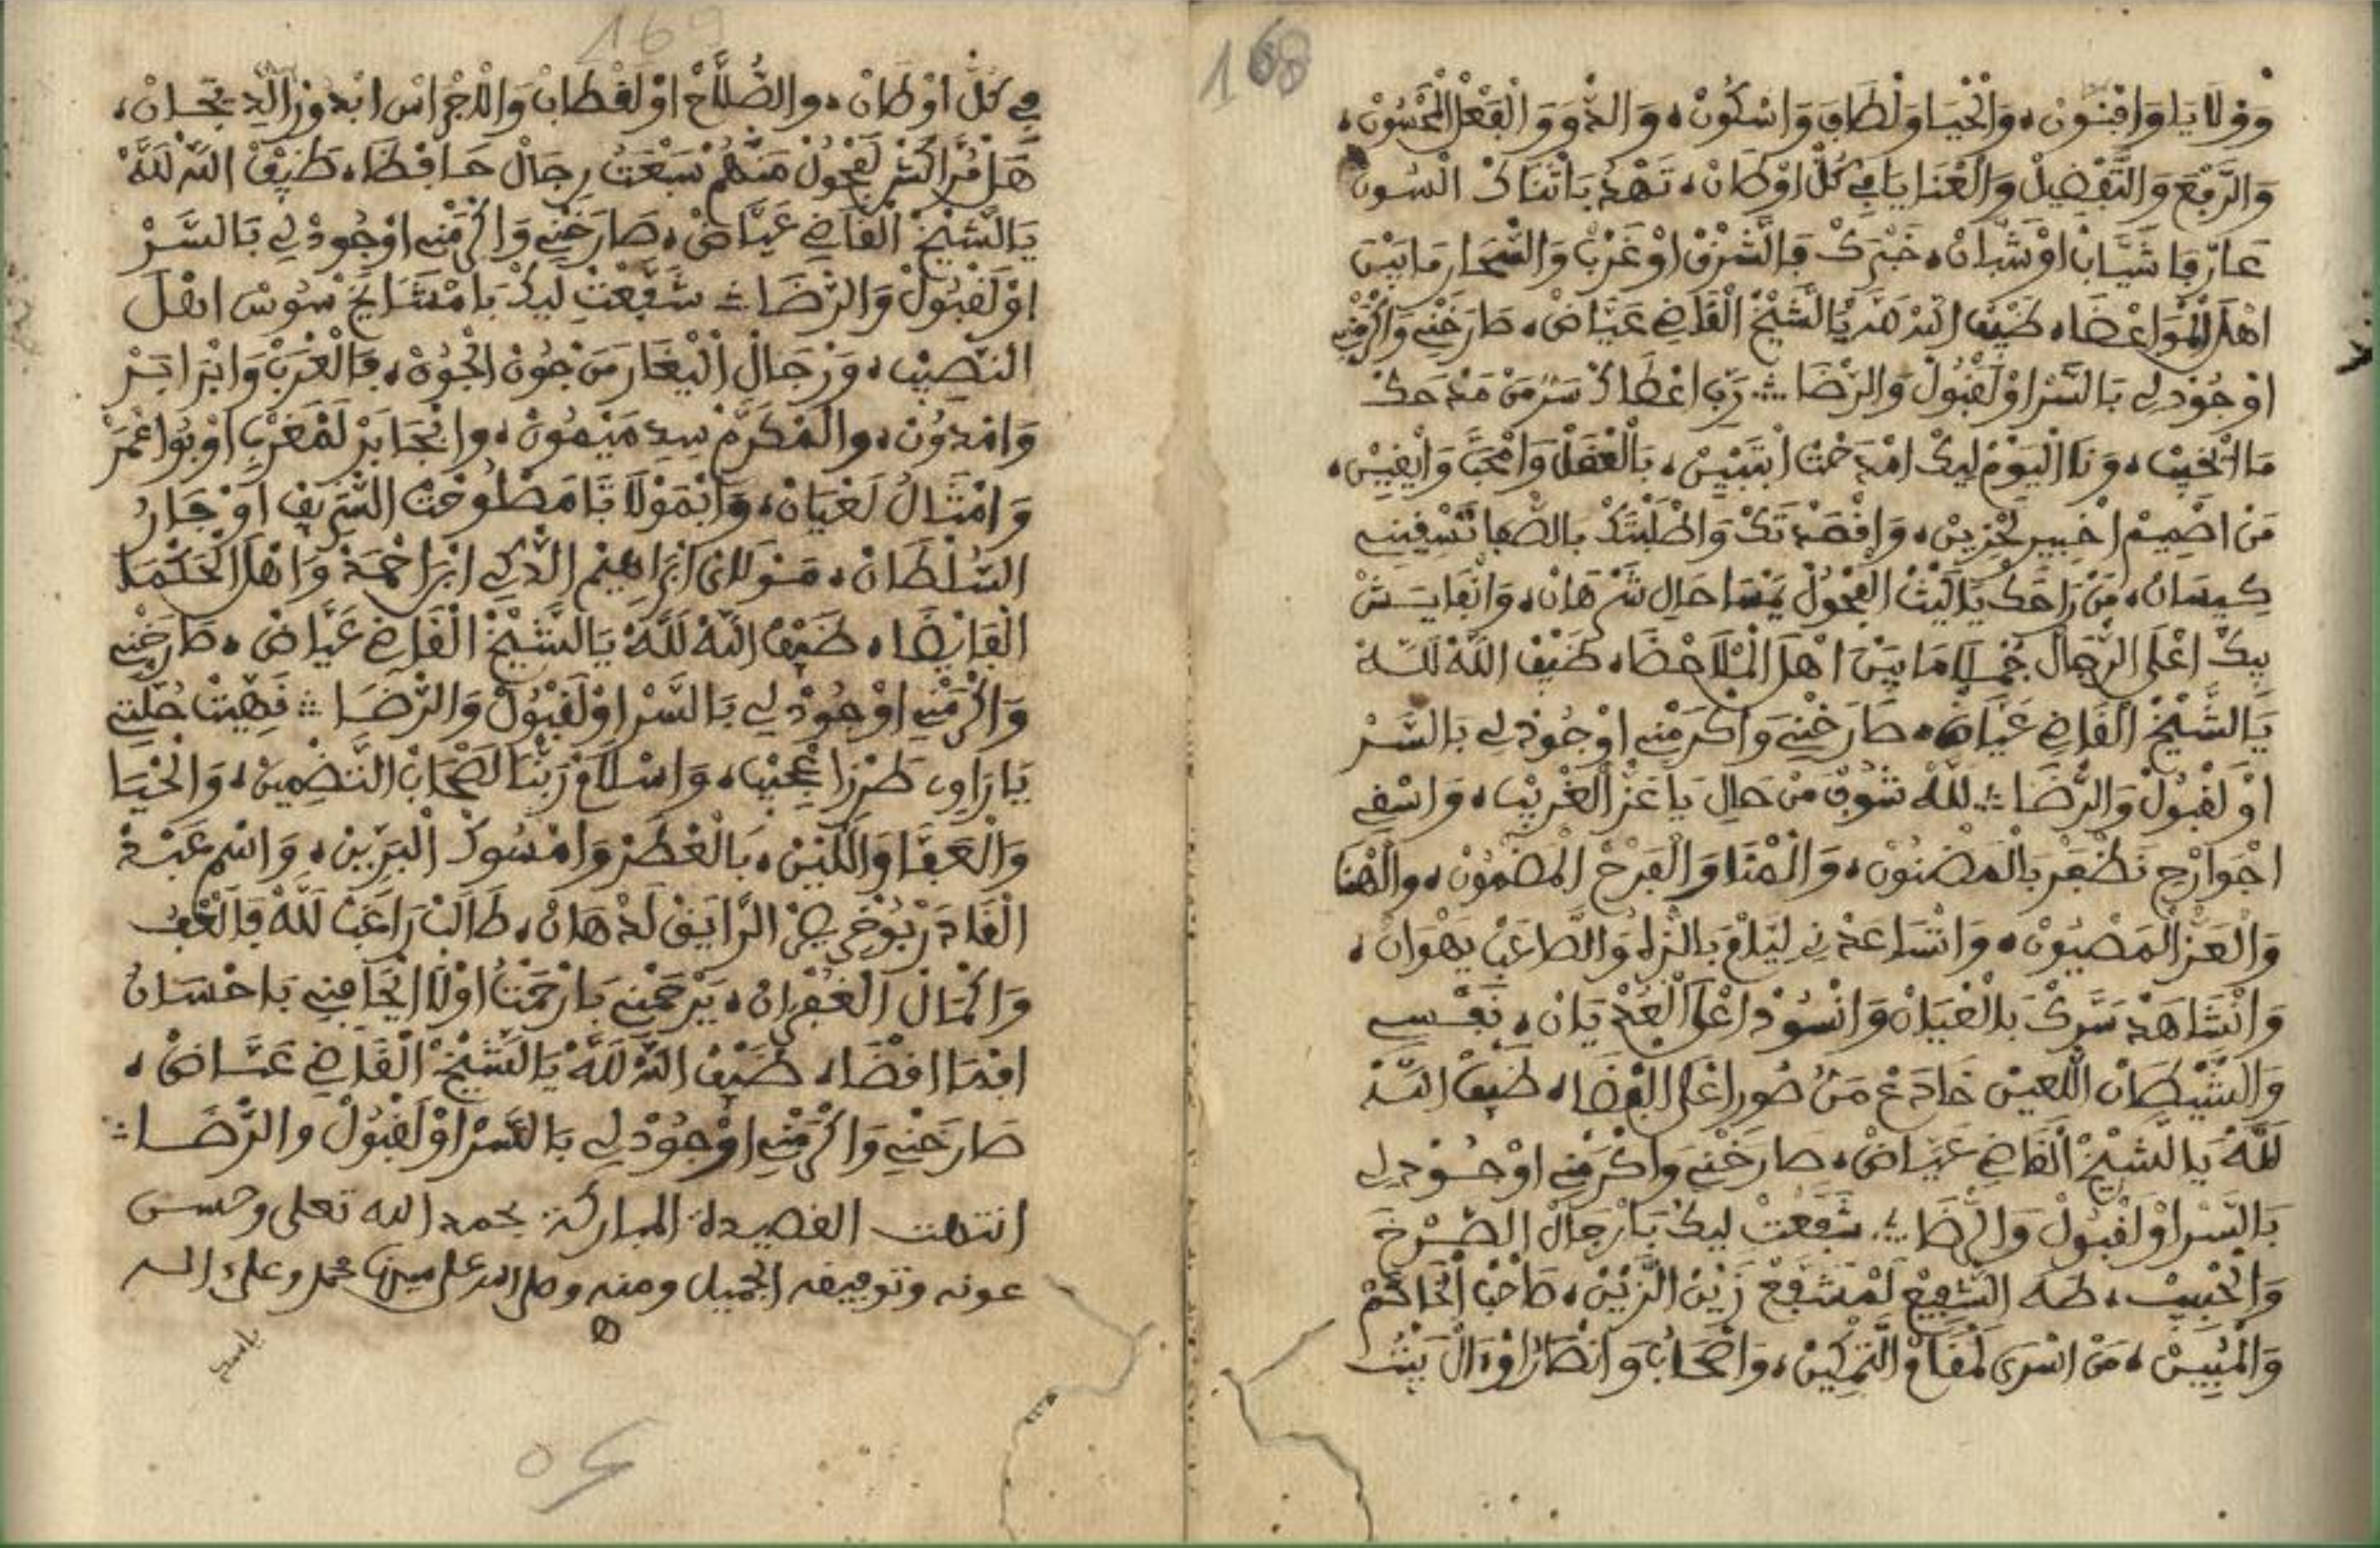 168
وَوْلَايَا وَافْنُونْ، وَالْحْيَا وَلْطَافَ وَاسْكُونْ، وَالذُّوقْ وَالْفَعْلْ الْمَحْسُونْ،
وَالرَّفْعَ وَالتَّفْضِيلْ وَالْعْنَايَا فِي كُلّْ اوْطَانْ، تَهْدْ بَاثْنَاكْ الْسُونْ
عَارْفَا شَيَّابْ اوْشَبَّانْ، خَبْرَكْ فَالشَّرْقْ اوْغَرْبْ وَالشّْحَارْ مَابَيْنْ
اهْلَ الْمْوَاعْضَا، ضَيْفْ اللَّهْ لَلَّهْ يَا الشِّيْخْ الْقَاضِي عَيَّاضْ، صَارَخْنِي وَاكْرَمْنِي
اوْجُودْ لِي بَالسَّرْ اوْلَقْبُولْ وَالرّْضَا ؞ رَبِّ اعْطَاكْ سَرّْ مَنْ مَدْحَكْ
مَا اتْخَيْبْ، وَنَا الْيَوْمْ لِيكْ امْدَحْتْ ابْتَبْيِينْ، بَالْعْقَلْ وَامْحَبَّ وَالِيقِينْ،
مَنْ اصْمِيمْ اخْبِيرْ لَحْزِينْ، وَاقْصَدْتَكْ وَاطْلَبْتَكْ بَالصّْفَا تَسْقِينِي
كِيسَانْ، مَنْ رَاحَكْ يَا لَيْثْ الْفْحُولْ يَنْسَا حَالِي شَرّْ هَانْ، وَانْفَايَسْ
بِيكْ اعْلَى الرّْجَالْ جُمْلَا مَابِينْ اهْلَ الْمْلَاحْضَا، ضَيْفْ اللَّهْ لَلَّهْ
يَا الشِّيْخْ الْقَاضِي عَيَّاضْ، صَارَخْنِي وَاكْرَمْنِي اوْجُودْ لِي بَالسَّرْ
اوْلَقْبُولْ وَالرّْضَا ؞ لَلَّهْ شُوفْ مَنْ حَالِي يَا عَزّْ الْغْرِيبْ، وَاسْقِي
اجْوَارْحِي نَظْفَرْ بَالْمَضْنُونْ، وَالْمْنَا وَالْفَرْحْ الْمَضْمُونْ، وَالْهْنَا
وَالْعَزّْ الْمَصْيُونْ، وَاتْسَاعَدْنِي لِيَّامْ بَالزّْهْوْ وَالصَّاعَبْ يَهْوَانْ،
وَانْشَاهَدْ سَرَّكْ بَالْعْيَانْ وَانْسُودْ اعْلَى الْعَدْيَانْ، نَفْسِي
وَالشَّيْطَانْ اللَّعِينْ خَادَعْ مَنْ صُورْ اعْلَى الْفْضَا، ضَيْفْ اللَّهْ
لَلَّهْ يَا الشِّيْخْ الْقَاضِي عَيَّاضْ، صَارَخْنِي وَاكْرَمْنِي اوْجُودْ لِي
بَالسَّرْ اوْلَقْبُولْ وَالرّْضَا ؞ شَفَّعْتْ لِيكْ بَارْجَالْ الصَّرْخَ
وَالْحْبِيبْ، طَهَ الشّْفِيعْ لَمْشَفَّعْ زَيْنْ الزَّيْنْ، صَاحْبْ الْخَاتَمْ
وَالْمْبِيِّنْ، مَنْ اسْرَى لَمْقَامْ التَّمْكِينْ، وَاصْحَابُ وَانْصَارُ اوْءَالْ بَيْتُ
169
فِي كُلّْ اوْطَانْ، وَالصُّلَّاحْ اوْلَقْطَابْ وَالَاجْرَاسْ ابْدُورْ الْدِيجَانْ،
هَلْ مُرَّاكُشْ لَفْحُولْ مَنْهُمْ سَبْعَتُ رِجَالْ حَافِظَا، ضَيْفْ اللَّهْ لَلَّهْ
يَا الشِّيْخْ الْقَاضِي عَيَّاضْ، صَارَخْنِي وَاكْرَمْنِي اوْجُودْ لِي بَالسَّرْ
اوْلَقْبُولْ وَالرّْضَا ؞ شَفَّعْتْ لِيكْ بَامْشَايَخْ سُوسْ اهْلْ
النّْصِيبْ، وَرْجَالْ الْيْغَارْ مَنْ جُونْ الْجُونْ، فَالْغَرْبْ وَابْرَابَرْ
وَامْدُونْ، وَالْمَكَرَّمْ سِيدِ مَيْمُونْ، وَاجْحَابَرْ لَمْغَرْبْ اوْبُواعْمَرْ
وَامْثَالُ لَعْيَانْ، وَابْمَوْلَاتَا مَصْلُوحْتْ الشّْرِيفْ اوْجَارُ
السُّلْطَانْ، مَوْلَايْ ابْرَاهِيمْ الذّْكِي ابْرَاحْمَة وَاهْلَ الْحَكْمَا
الْفَايْضَا، ضَيْفْ اللَّهْ لَلَّهْ يَا الشِّيْخْ الْقَاضِي عَيَّاضْ، صَارَخْنِي
وَاكْرَمْنِي اوْجُودْ لِي بَالسَّرْ اوْلَقْبُولْ وَالرّْضَا ؞ نَهِيتْ حُلّْتِي
يَا رَاوِي طَرْزَا عْجِيبْ، وَاسْلَامْ رَبّْنَا لَصْحَابْ النّْضْمِينْ، وَالْحْيَا
وَالْعَفَّا وَاللِّينْ، بَالْعْطَرْ وَامْسُوكْ الْبَرِّينْ، وَاسْمِ عَبْدْ
الْقَادَرْ بُوخْرِيصْ الرَّايَقْ لَدْهَانْ، طَالَبْ رَاغَبْ لَلَّهْ فَالْعْفُ
وَاكْمَالْ الْغُفْرَانْ، يَرْحَمْنِي بَارْحَمْتُ اوْلَا ايْجَافِنِي بَاحْسَانُ
افْمَا اقْضَا، ضَيْفْ اللَّهْ لَلَّهْ يَا الشِّيْخْ الْقَاضِي عَيَّاضْ،
صَارَخْنِي وَاكْرَمْنِي اوْجُودْ لِي بَالسَّرْ اوْلَقْبُولْ وَالرّْضَا ؞
انتهت القصيدة المباركة بحمد الله تعلى وحسن
عونه وتوفيقه الجميل ومنه وصلى الله على سيدنا محمد وعلى اله
ه